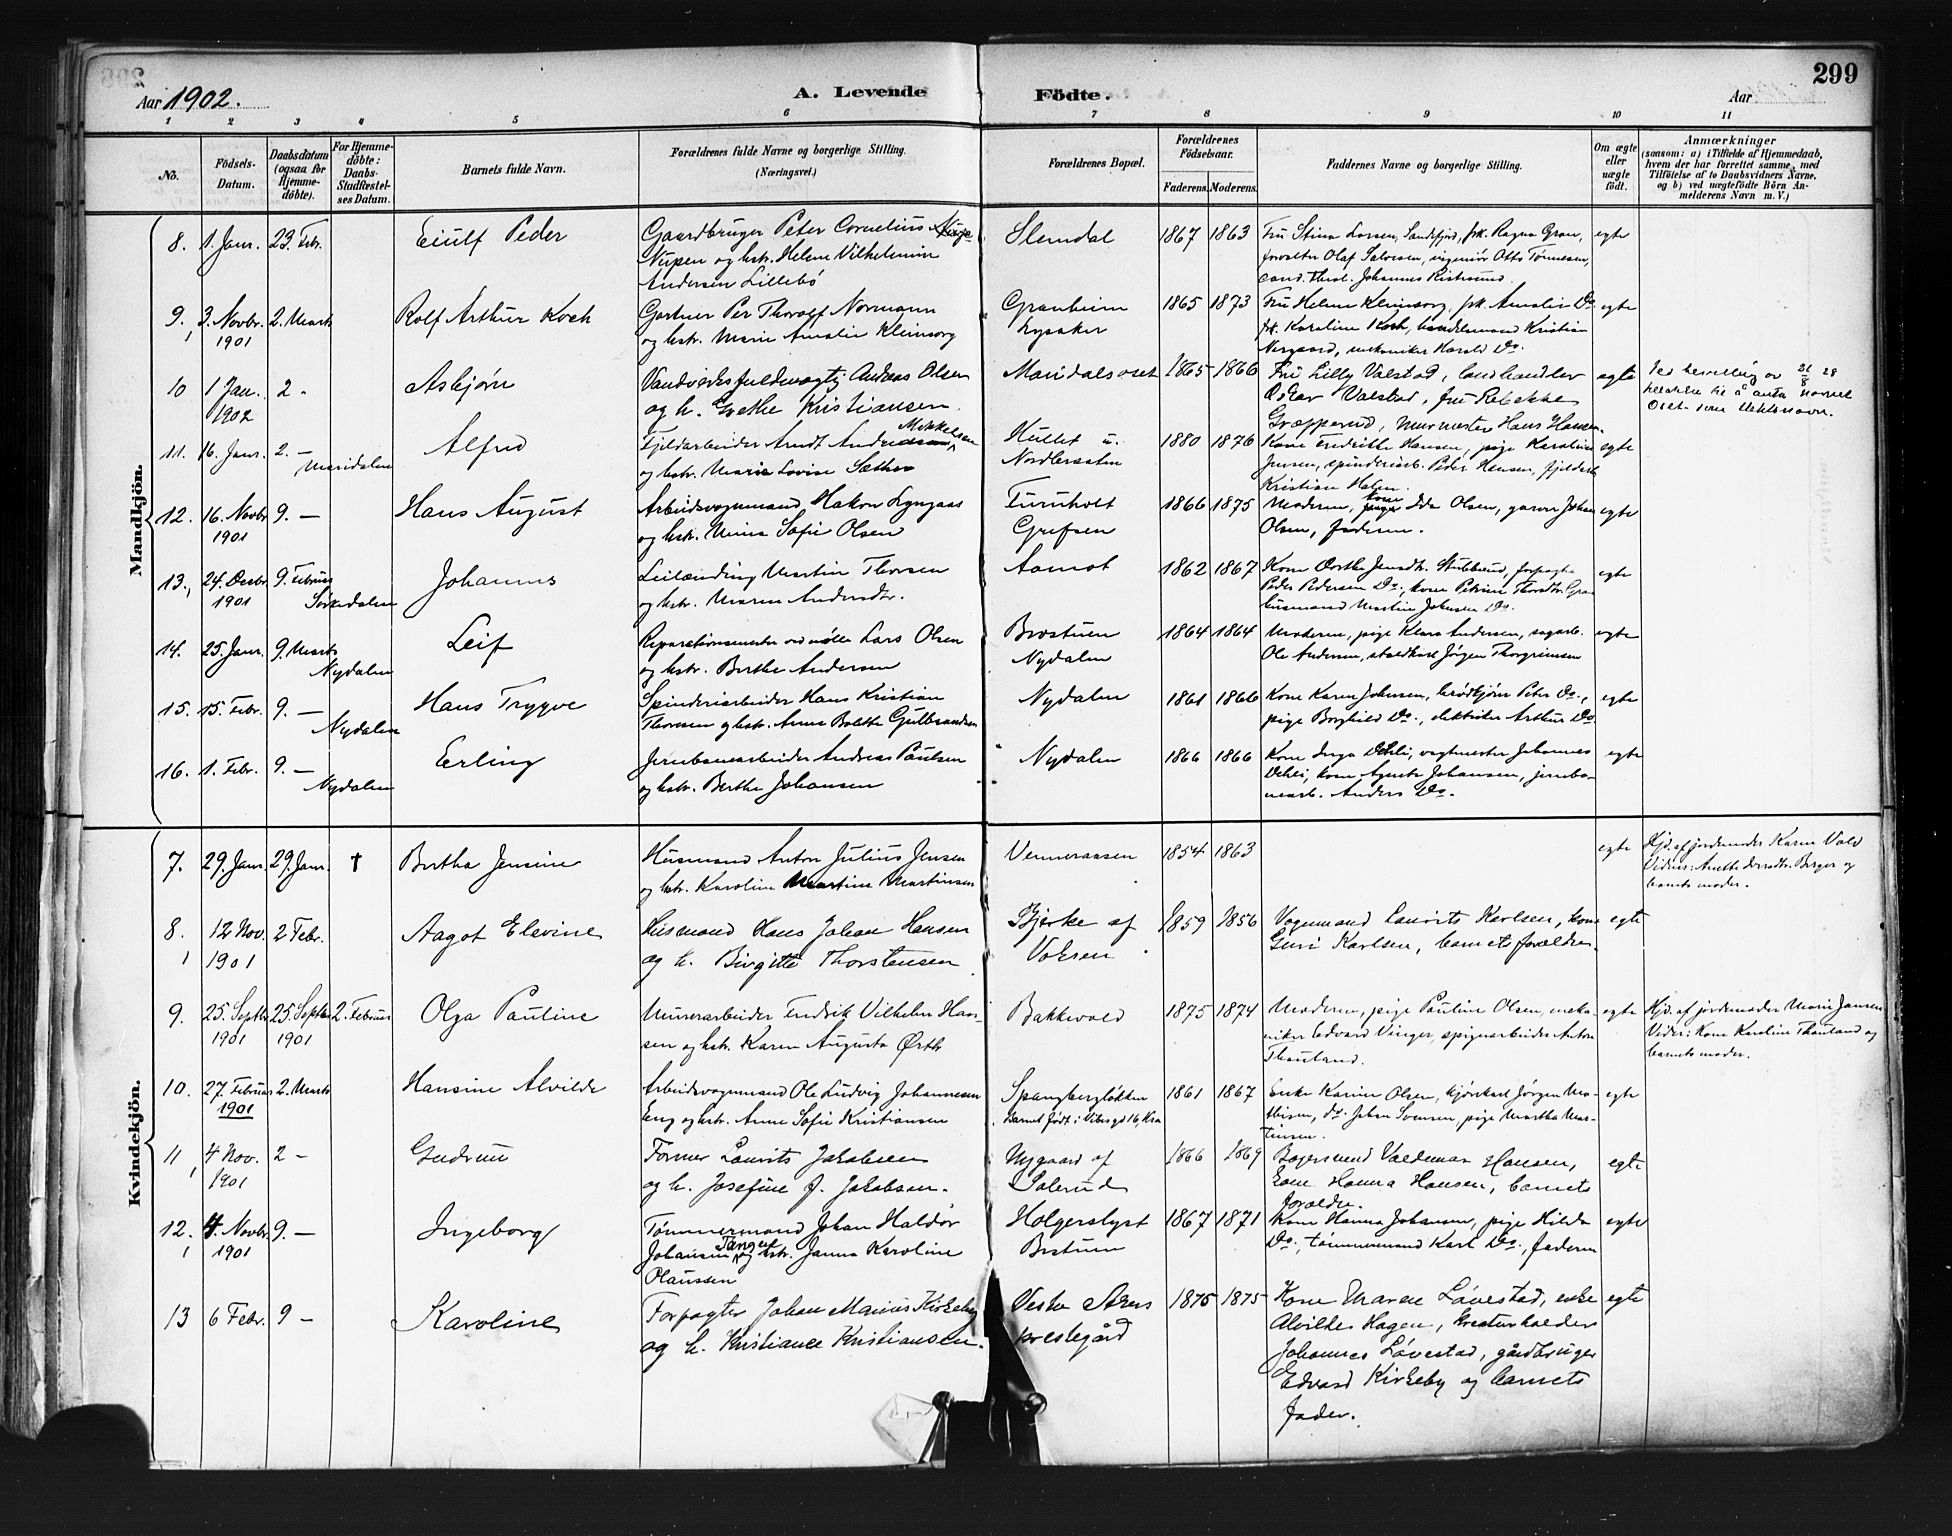 299
Aar 1902.
A. Levende Födte.
Aar
1 2 3 4 5 6 7 8 9 10 11
No.
Födsels-Datum.
Daabsdatum (ogsaa for Hjemme-döbte).
For Hjemme-döbte: Daabs-Stadfæstel-ses Datum.
Barnets fulde Navn.
Forældrenes fulde Navne og borgerlige Stilling.
(Næringsvei.)
Forældrenes Bopæl.
Forældrenes Födselsaar.
Faderens. Moderens.
Faddernes Navne og borgerlige Stilling.
Om ægte eller uægte födt.
Anmærkninger
(saasom: a) i Tilfælde af Hjemmedaab,
hvem der har forrettet samme, med
Tilföielse af to Daabsvidners Navne,
og b) ved uægtefödte Börn An-
melderens Navn m. V.)
Mandkjön.
8. 1. Janr. 23. Febr. Eiulf Peder Gaardbruger Peter Cornelius Slemdal 1867 1863 Fru Stina Larsen, Sandefjord, frk. Ragna Gran, egte
Nupen og hstr. Helene Vilhelmine forvalter Olaf Salvesen, ingeniör Otto Tönnesen,
Andersen Lillebö cand. theol. Johannes
9. 3. Novbr. 2. Marts Rolf Arthur Koch Gartner Per Thorolf Normann Granheim 1865 1873 Fru Helene Kleinsorg, frk. Amalie Do egte
1901 og hstr. Marie Amalie Kleinsorg Lysaker fr. Karoline Koch, handelsmand Kristian
Nergaard, mekaniker Harald Do.
10 1 Jan. 2 - Asbjørn Vandværksfuldmægtig Andreas Olsen Maridalsoset 1865 1866 Fru Lilly Valstad, landhandler egte Ved bevilling av 21/8 28
1902 og h. Grethe Kristiansen. Oskar Valstad, fru Rebekka
Oset som slektsnavn.
Græpperud, murmester Hans Hansen.
11. 16. Janr. 2. — Alfred Fjeldarbeider Arndt Mikkelsen Hullet u. 1880 1876 Kone Fredrikke Hansen, pige Karoline egte
Maridalen og hstr. Marie Lovise Sæther Nordbersaten Jensen, spinderiarb. Peder Hansen, fjeldarb.
Kristian Halen.
12. 16. Novbr 9. — Hans August Arbeidsvognmand Hakon Lyngaas Furuholt 1866 1875 Moderen, kone Ida Olsen, garver Johan egte
1901 og hstr. Mina Sofie Olsen Grefsen Olsen, faderen.
13. 24. Decbr. 9. Februar Johannes Leilænding Martin Thorsen Aamot 1862 1867 Kone Dorthe Jensdtr. Stubberud, forpagter egte
1901 Sörkedalen og hstr. Maren Andersdtr. Peder Pedersen Do., kone Petrine Thorsdtr. Gran
husmand Martin Johnsen Do.
14. 25. Janr. 9. Marts Leif Reparationsmester ved mölle Lars Olsen Brostuen 1864 1864 Moderen, pige Klara Andersen, sagarb. egte
Nydalen og hstr. Berthe Andersen Nydalen Ole Andersen, staldkarl Jörgen Thorgrimsen
15. 15. Febr. 9. — Hans Trygve Spinderiarbeider Hans Kristian Nydalen 1861 1866 Kone Karen Johnsen, brödkjörer Peter Do., egte
Nydalen Thoresen og hstr. Anna Bolette Gulbrandsen pige Borghild Do., elektriker Arthur Do
16. 1. Febr. 9. — Erling Jernbanearbeider Andreas Paulsen Nydalen 1866 1866 Kone Inga Dehli, vagtmester Johannes egte
Nydalen og hstr. Berthe Johansen Dehli, kone Agnete Johansen, jernba-
nearb. Anders Do.
Kvindekjön.
7. 29. Janr. 29. Janr. † Bertha Jensine Husmand Anton Julius Jensen Venneraasen 1854 1863 egte Hjd. af jordemoder Karen Vold
og hstr. Karoline Martine Martinsen Vidner: Anette Berger og
barnets moder.
8. 12 Nov. 2 Febr. Aagot Elevine Husmand Hans Johan Hansen Bjerke af 1859 1856 Vognmand Laurits Karlsen, kone egte
1901 og h. Birgitte Thorstensen Voksen Guri Karlsen, barnets forældre.
9. 25. Septbr. 25. Septbr 2. Februar Olga Pauline Murerarbeider Fredrik Vilhelm Han- Bakkevold 1875 1874 Moderen, pige Pauline Olsen, meka- egte Hjd. af jordemoder Marie Jansen
1901 1901 sen og hstr. Karen Augusta Örth niker Edvard Vinger, spigerarbeider Anton Vidner: Kone Karoline Thauland og
Thauland. barnets moder.
10. 27. Februar 2. Marts Hansine Alvilde Arbeidsvognmand Ole Ludvig Johannesen Spangberglökken 1861 1867 Enke Karine Olsen, kjörekarl Jörgen Ma- egte
1901 Eng og hstr. Anne Sofie Kristiansen Barnet födt i Vibesgd 16, Kra thisen, do. Johan Svensen, pige Martha Mar-
tinsen.
11 4 Nov. 2 - Gudrun Former Laurits Jakobsen Nygaard af 1866 1869 Bogersvend Valdemar Hansen, egte
1901 og h. Josefine J. Jakobsen. Solerud kone Hanna Hansen, barnets
forældre.
12. 4. Novbr. 9. — Ingeborg Tömmermand Johan Haldor Holgerslyst 1867 1871 Kone Hanna Johansen, pige Hilda egte
1901 Johansen Tangen og hstr. Janna Karoline Brstuen Do., tömmermand Karl Do., faderen
Olaussen
13 6 Febr. 9 — Karoline Forpagter Johan Marius Kirkeby Vestre Akers 1875 1875 Kone Maren Lövestad, enke egte
og h. Kristiance Kristiansen. prestegård Alvilde Hagen, kreaturholder
Johannes Lövestad, gårdbruger
Edvard Kirkeby og barnets
fader.